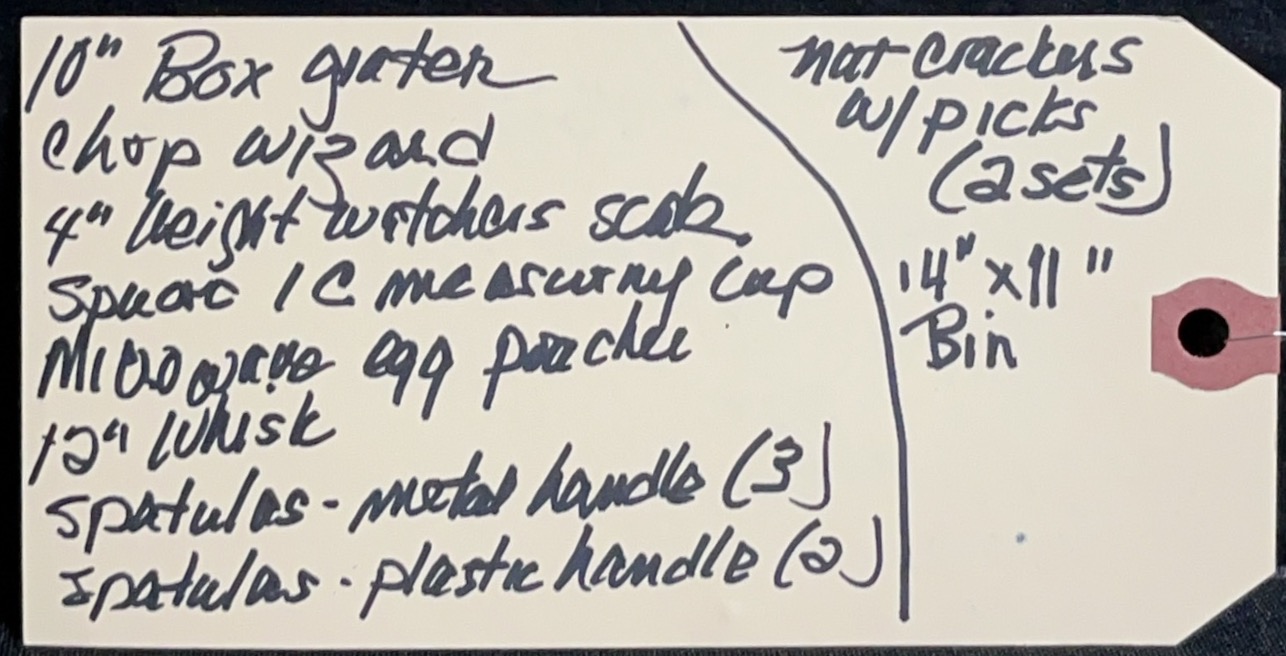 10" Box grater
Chop wizard
4" Weight watchers scale
Square 1 C measuring cup
Microwave egg poacher
12" Whisk
Spatulas - metal handle (3)
Spatulas - plastic handle (2)
nut crackers
w/ picks
(2 sets)
14" x 11"
Bin